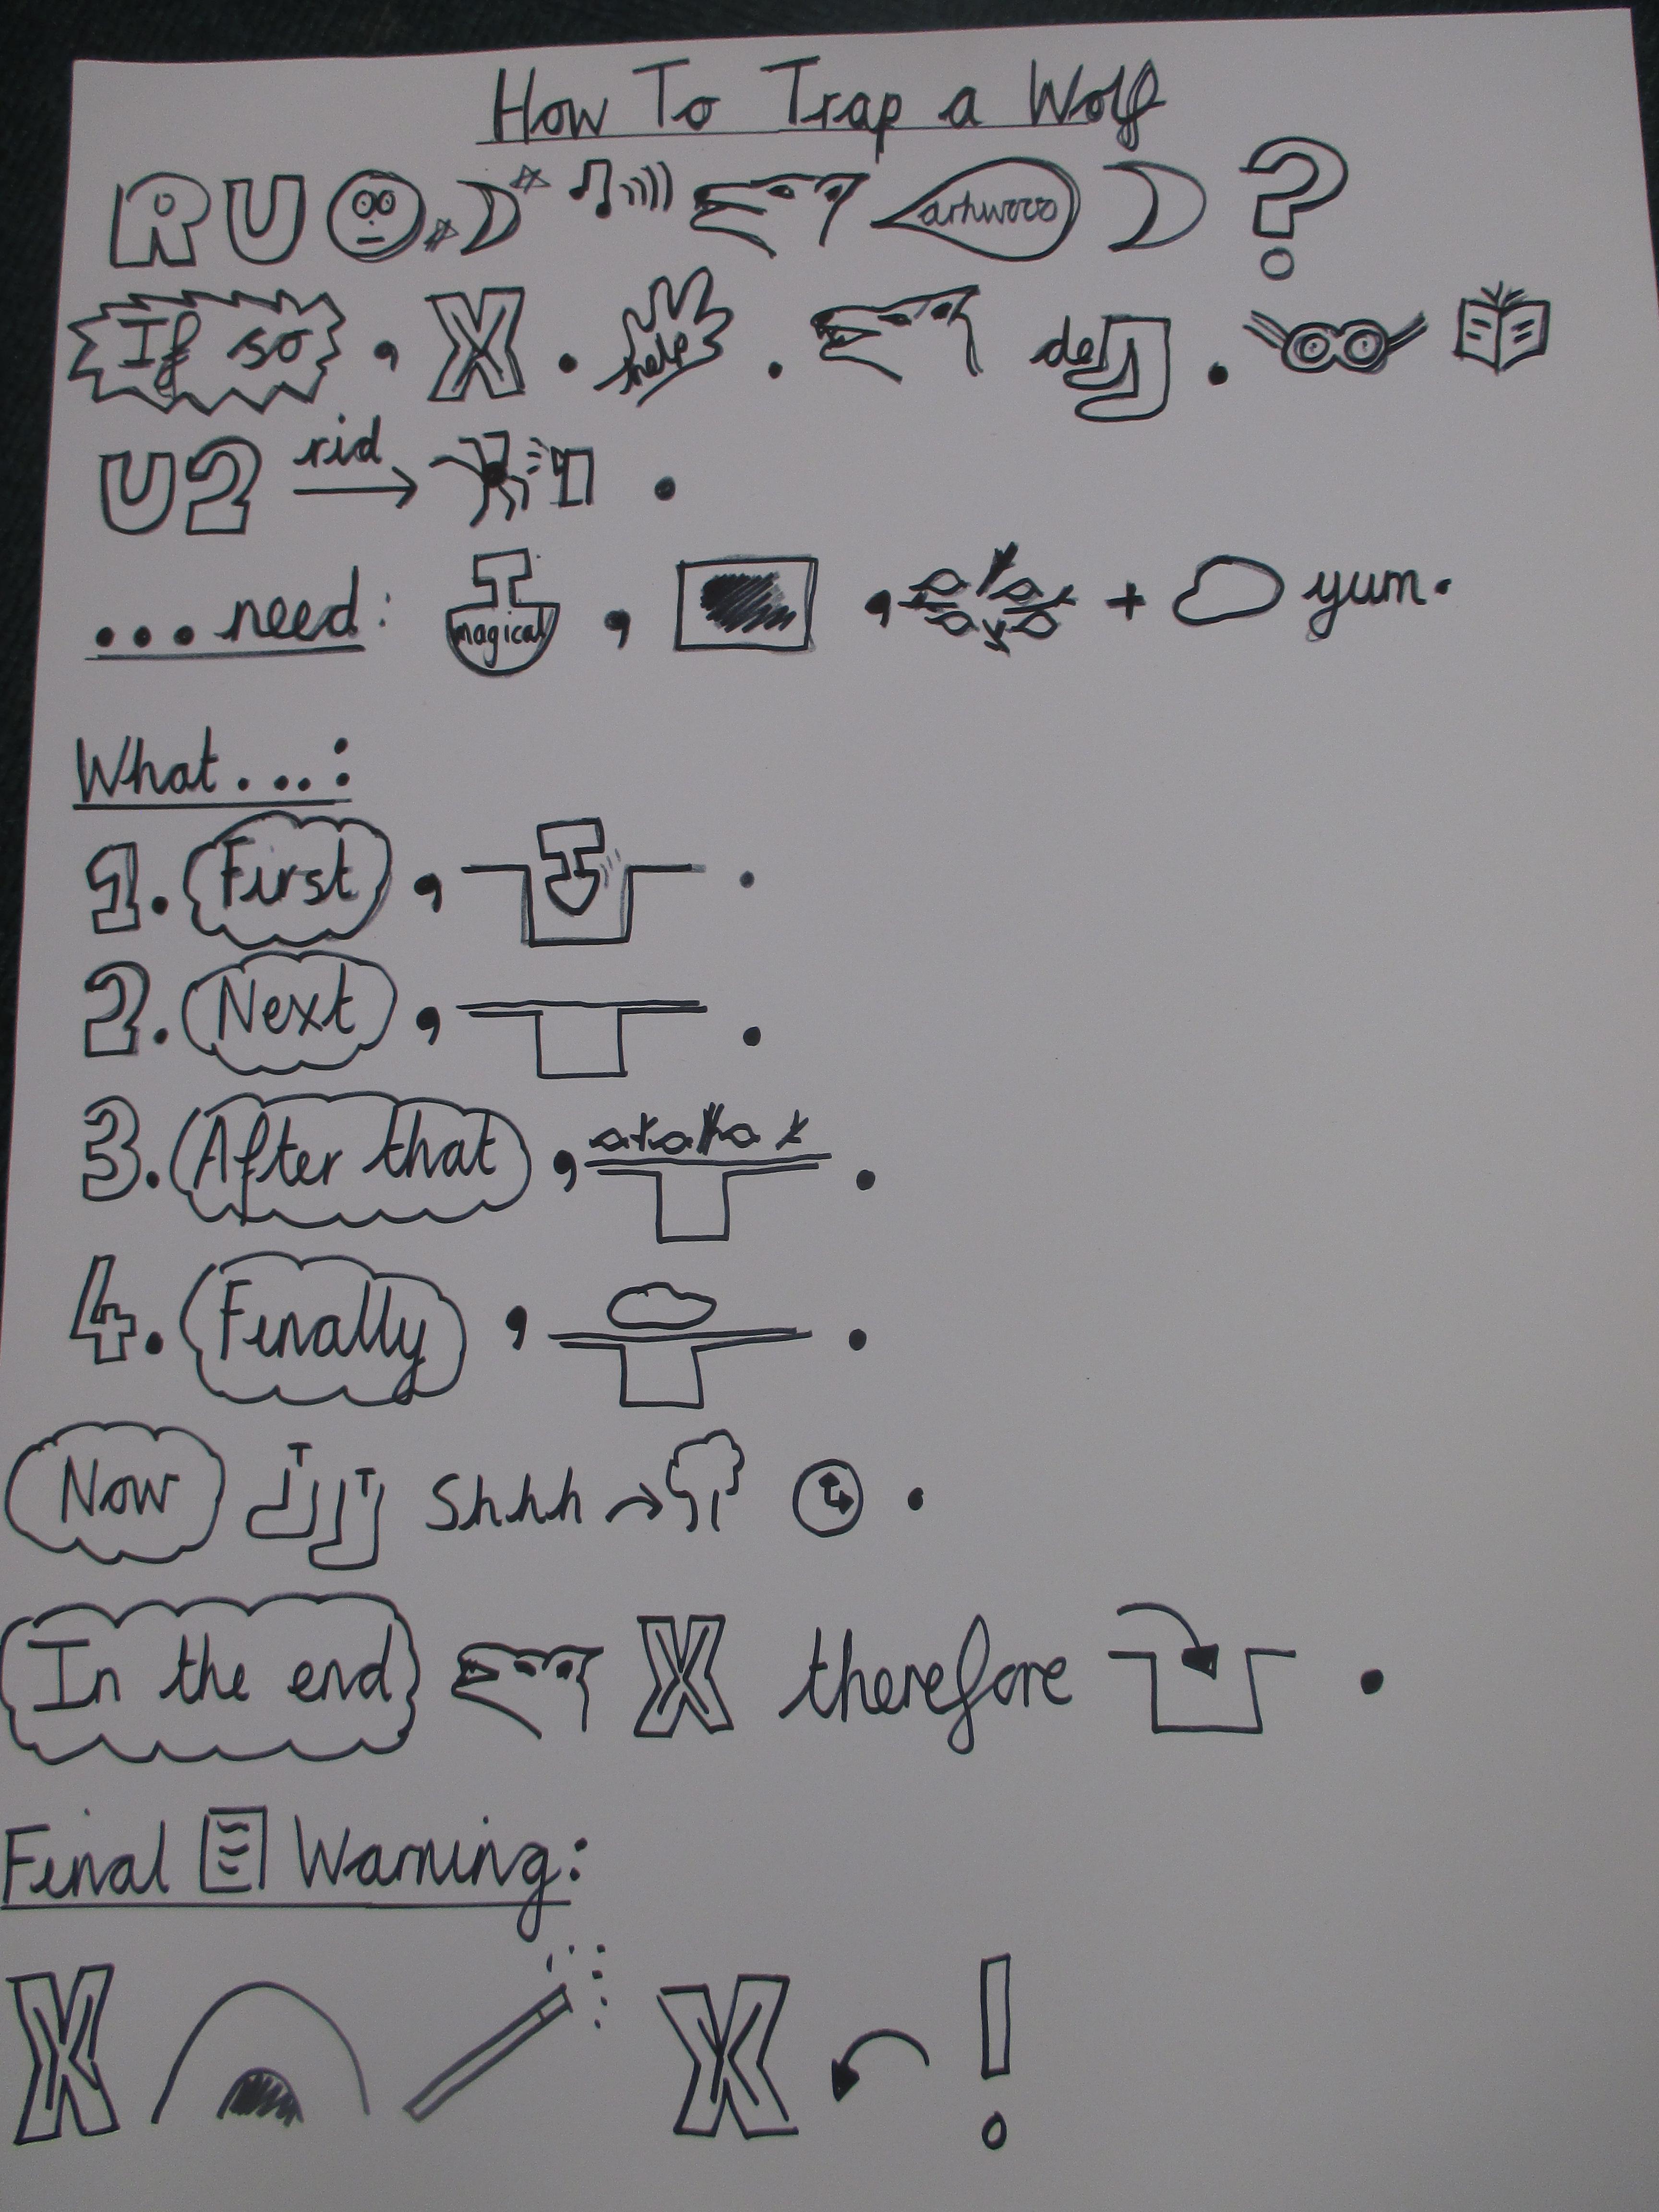 How To Trap a Wolf
R U arhwooo ?
If so, X. help. def.
U2 rid .
... need: magical, , + yum.
What...:
1. First, .
2. Next, .
3. After that, .
4. Finally, .
Now Shhh .
In the end X therefore .
Final Warning:
X X !